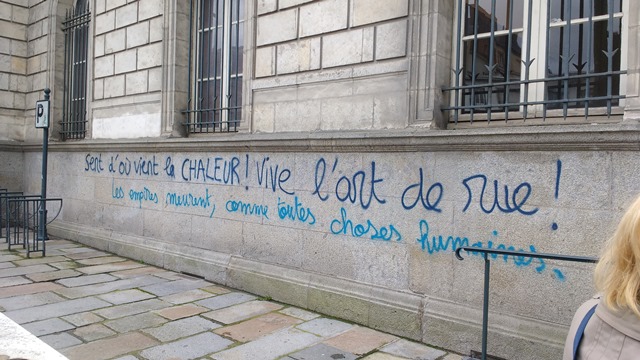 Sent d'où vient la CHALEUR! Vive l'art de rue!
Les empires meurent, comme toutes choses humaines.